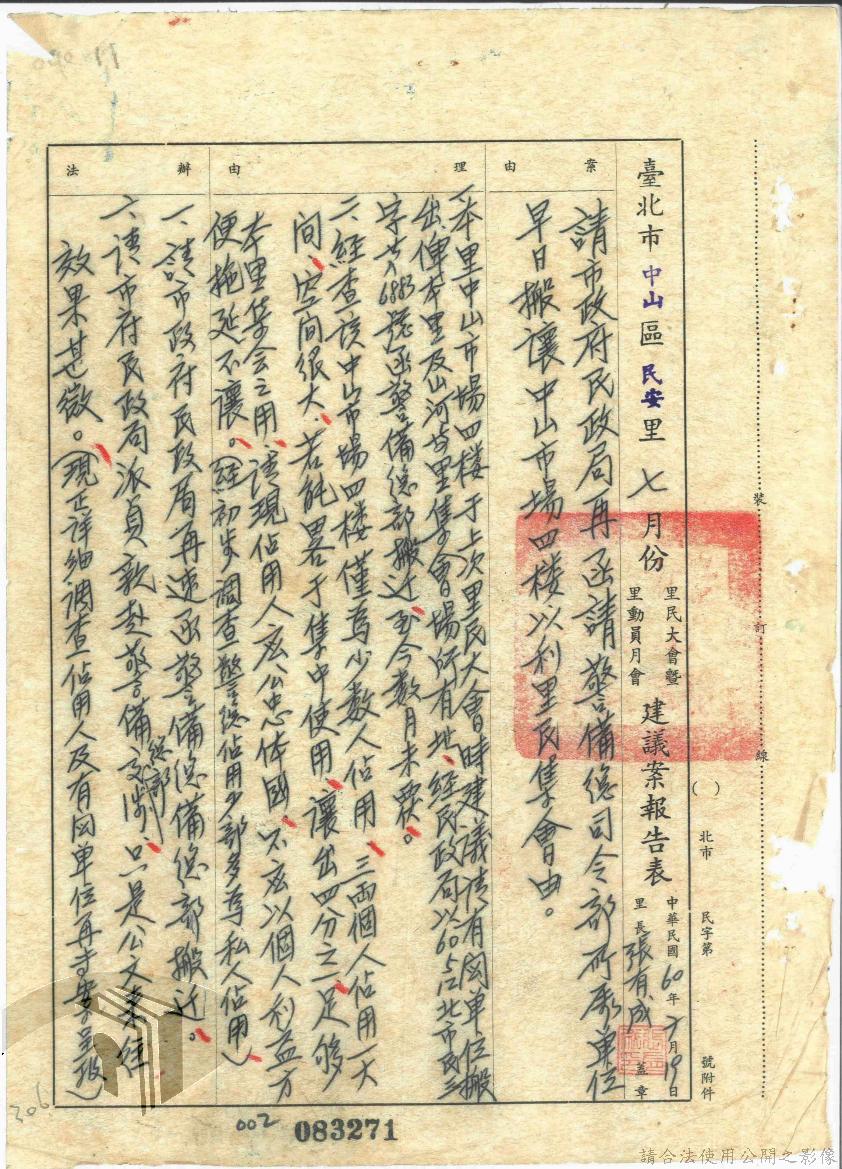 臺北市中山區民安里七月份里民大會暨里動員月會建議案報告表
( )北市民字第 號附件
中華民國60年7月19日
里長張有成蓋章
裝訂線
案由
請市政府民政局再函請警備總司令部所屬單位
早日搬讓中山市場四楼以利里民集會由。
理由
一、本里中山市場四楼于上次里民大會時建議請有関單位搬
出俾本里及山河等里集會場所有地、經民政局以60512北市民三
字第6883號函警備總部搬迁至今数月未覆。
二、經查该中山市場四楼僅為少數人佔用、三兩個人佔用一大
間、空間很大、若能畧于集中使用、讓出四分之二足够
本里集会之用、請現佔用人应公忠体國、不应以個人利益方
便拖延不讓。(經初步調查警总佔用少部多為私人佔用)
辦法
一、請市政府民政局再速函警備總備總部搬迁。
二、請市府民政局派員親赴警備總部交涉、只是公文来往
效果甚微。(現正详细調查佔用人及有関單位再专案呈報)
306
002 083271
請合法使用公開之影像